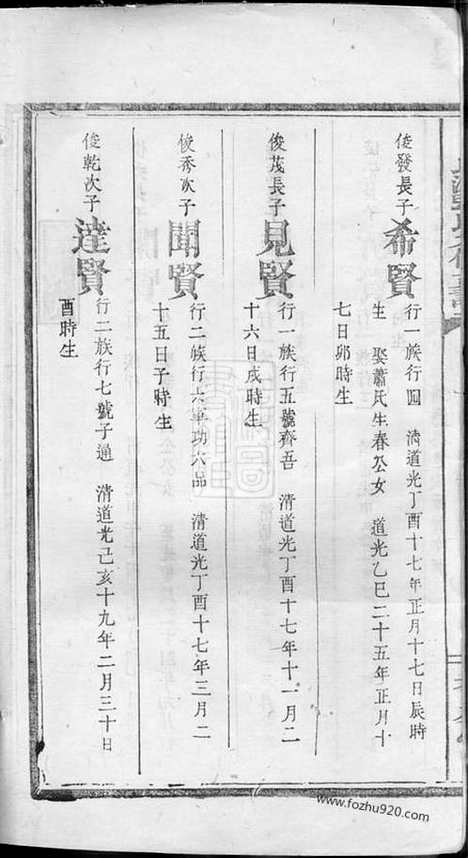 俊發長子
希賢
行一族行四 清道光丁酉十七年正月十七日辰時
生 娶蕭氏生春公女 道光乙巳二十五年正月十
七日卯時生
俊茂長子
見賢
行一族行五號齊吾 清道光丁酉十七年十一月二
十六日戌時生
俊秀次子
聞賢
行二族行六軍功六品 清道光丁酉十七年三月二
十五日子時生
俊乾次子
達賢
行二族行七號子通 清道光己亥十九年二月三十日
酉時生
www.fozhu920.com